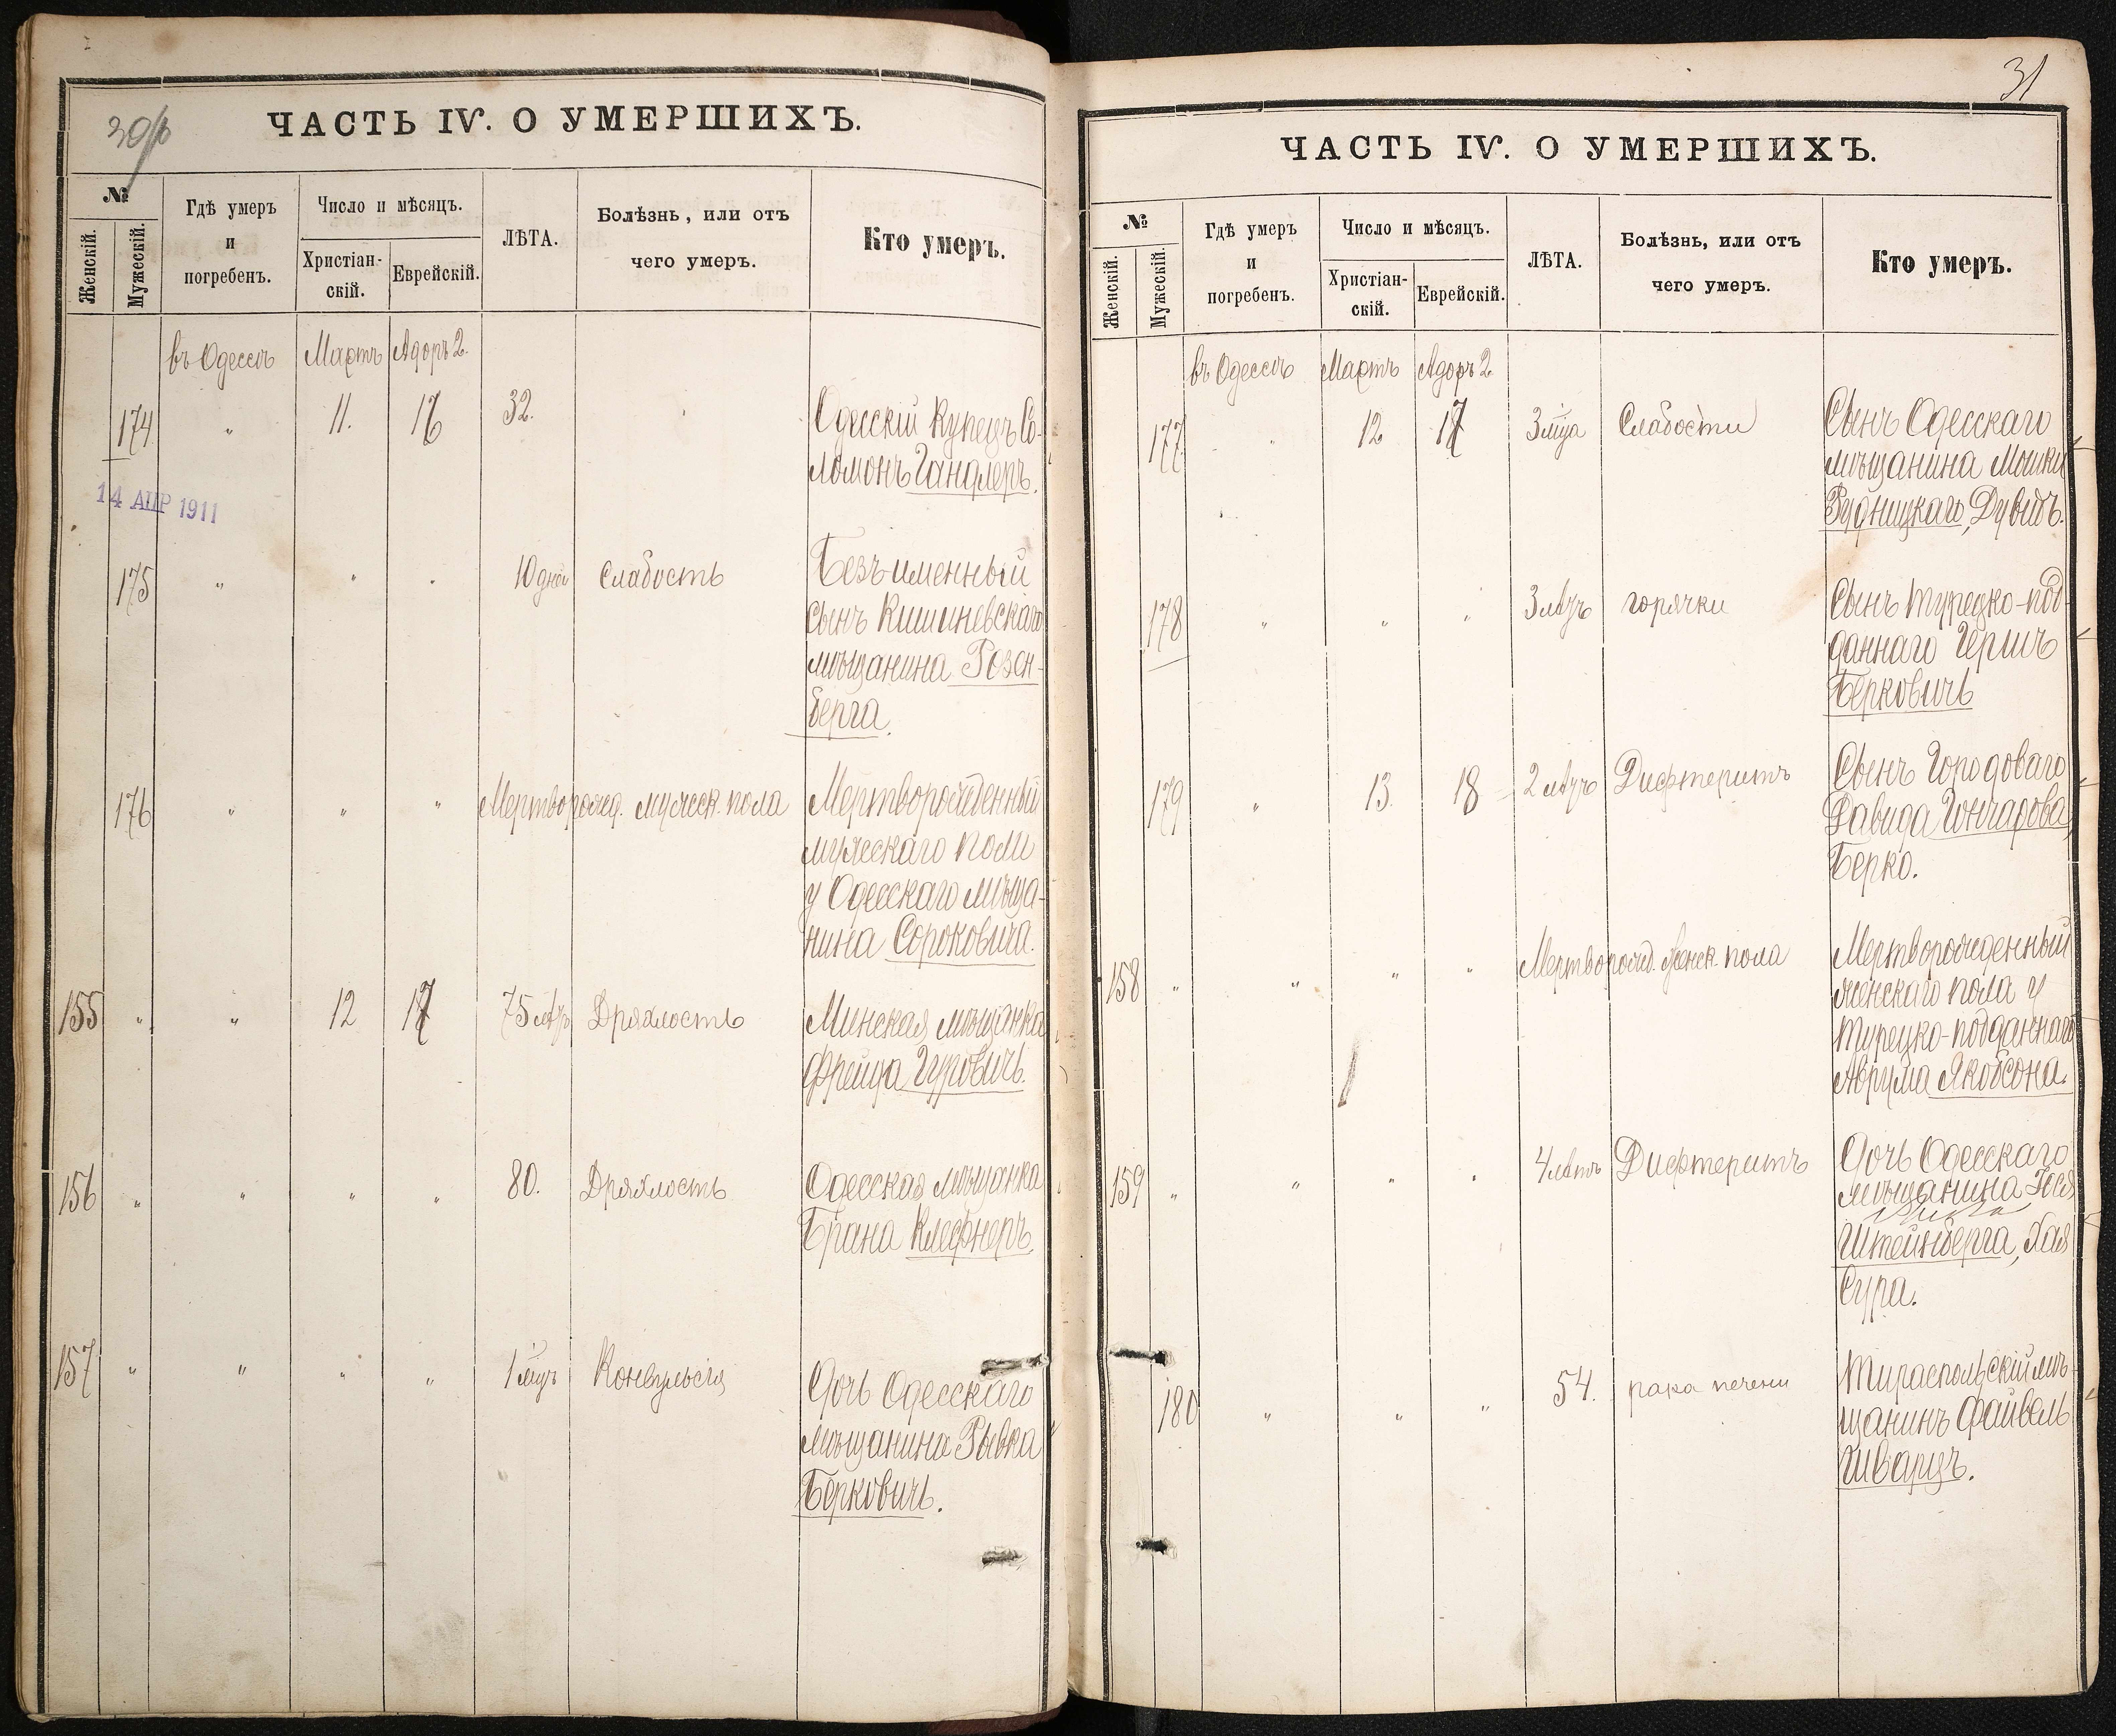 30/б
ЧАСТЬ IV. О УМЕРШИХЪ.
№
Женскій.
Мужескій.
Гдѣ умеръ
и
погребенъ.
Число и мѣсяцъ.
Христіан-
скій.
Еврейскій.
ЛѢТА.
Болѣзнь, или отъ
чего умеръ.
Кто умеръ.
въ Одессѣ Мартъ Адоръ 2.
174 " 11. 16 32.
Одесскій Купецъ Со-
ломонъ Гандлеръ.
14 АПР 1911
175 " " " 10 дней Слабость
Безъименный
сынъ Кишиневскаго
мѣщанина Розен-
берга.
176 " " " Мертворожд. мужеск. пола
Мертворожденный
мужескаго поли
у Одесскаго мѣща-
нина Сороковича.
155 " " 12 17 75 лѣтъ Дряхлость
Минская мѣщанка
Фрейда Гуровичъ.
156 " " " " 80. Дряхлость
Одесская мѣщанка
Брана Клефнеръ.
157 " " " " 1 мцъ Конвульсія
Дочь Одесскаго
мѣщанина Рывка
Берковичъ.
31
ЧАСТЬ IV. О УМЕРШИХЪ.
№
Женскій.
Мужескій.
Гдѣ умеръ
и
погребенъ.
Число и мѣсяцъ.
Христіан-
скій.
Еврейскій.
ЛѢТА.
Болѣзнь, или отъ
чего умеръ.
Кто умеръ.
въ Одессѣ Мартъ Адоръ 2
177 " 12 17 3 мца Слабости
Сынъ Одесскаго
мѣщанина Мошки
Рудницкаго, Дувидъ.
178 " " " 3 лѣтъ горячки
Сынъ турецко-под-
даннаго Гершъ
Берковичъ
179 " 13. 18 2 лѣтъ Дифтеритъ
Сынъ Городоваго
Давида Гончарова,
Берко.
158 " " " " Мертворожд. женск. пола
Мертворожденный
женскаго пола у
турецко-подданнаго
Аврума Якобсона.
159 " " " " 4 лѣтъ Дифтеритъ
Дочь Одесскаго
мѣщанина
Штейнберга, Хая
Сура.
180 " " " 54. рака печени
Тираспольскій мѣ-
щанинъ Файвель
Шварцъ.